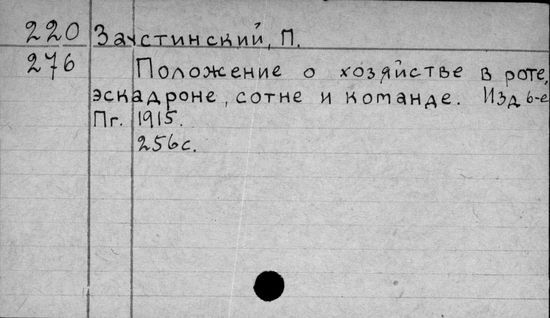 220 Заустинский, П.
276 Положение о хозяйстве в роте,
эскадроне, сотне и команде. Изд 6-е
Пг. 1915.
256с.